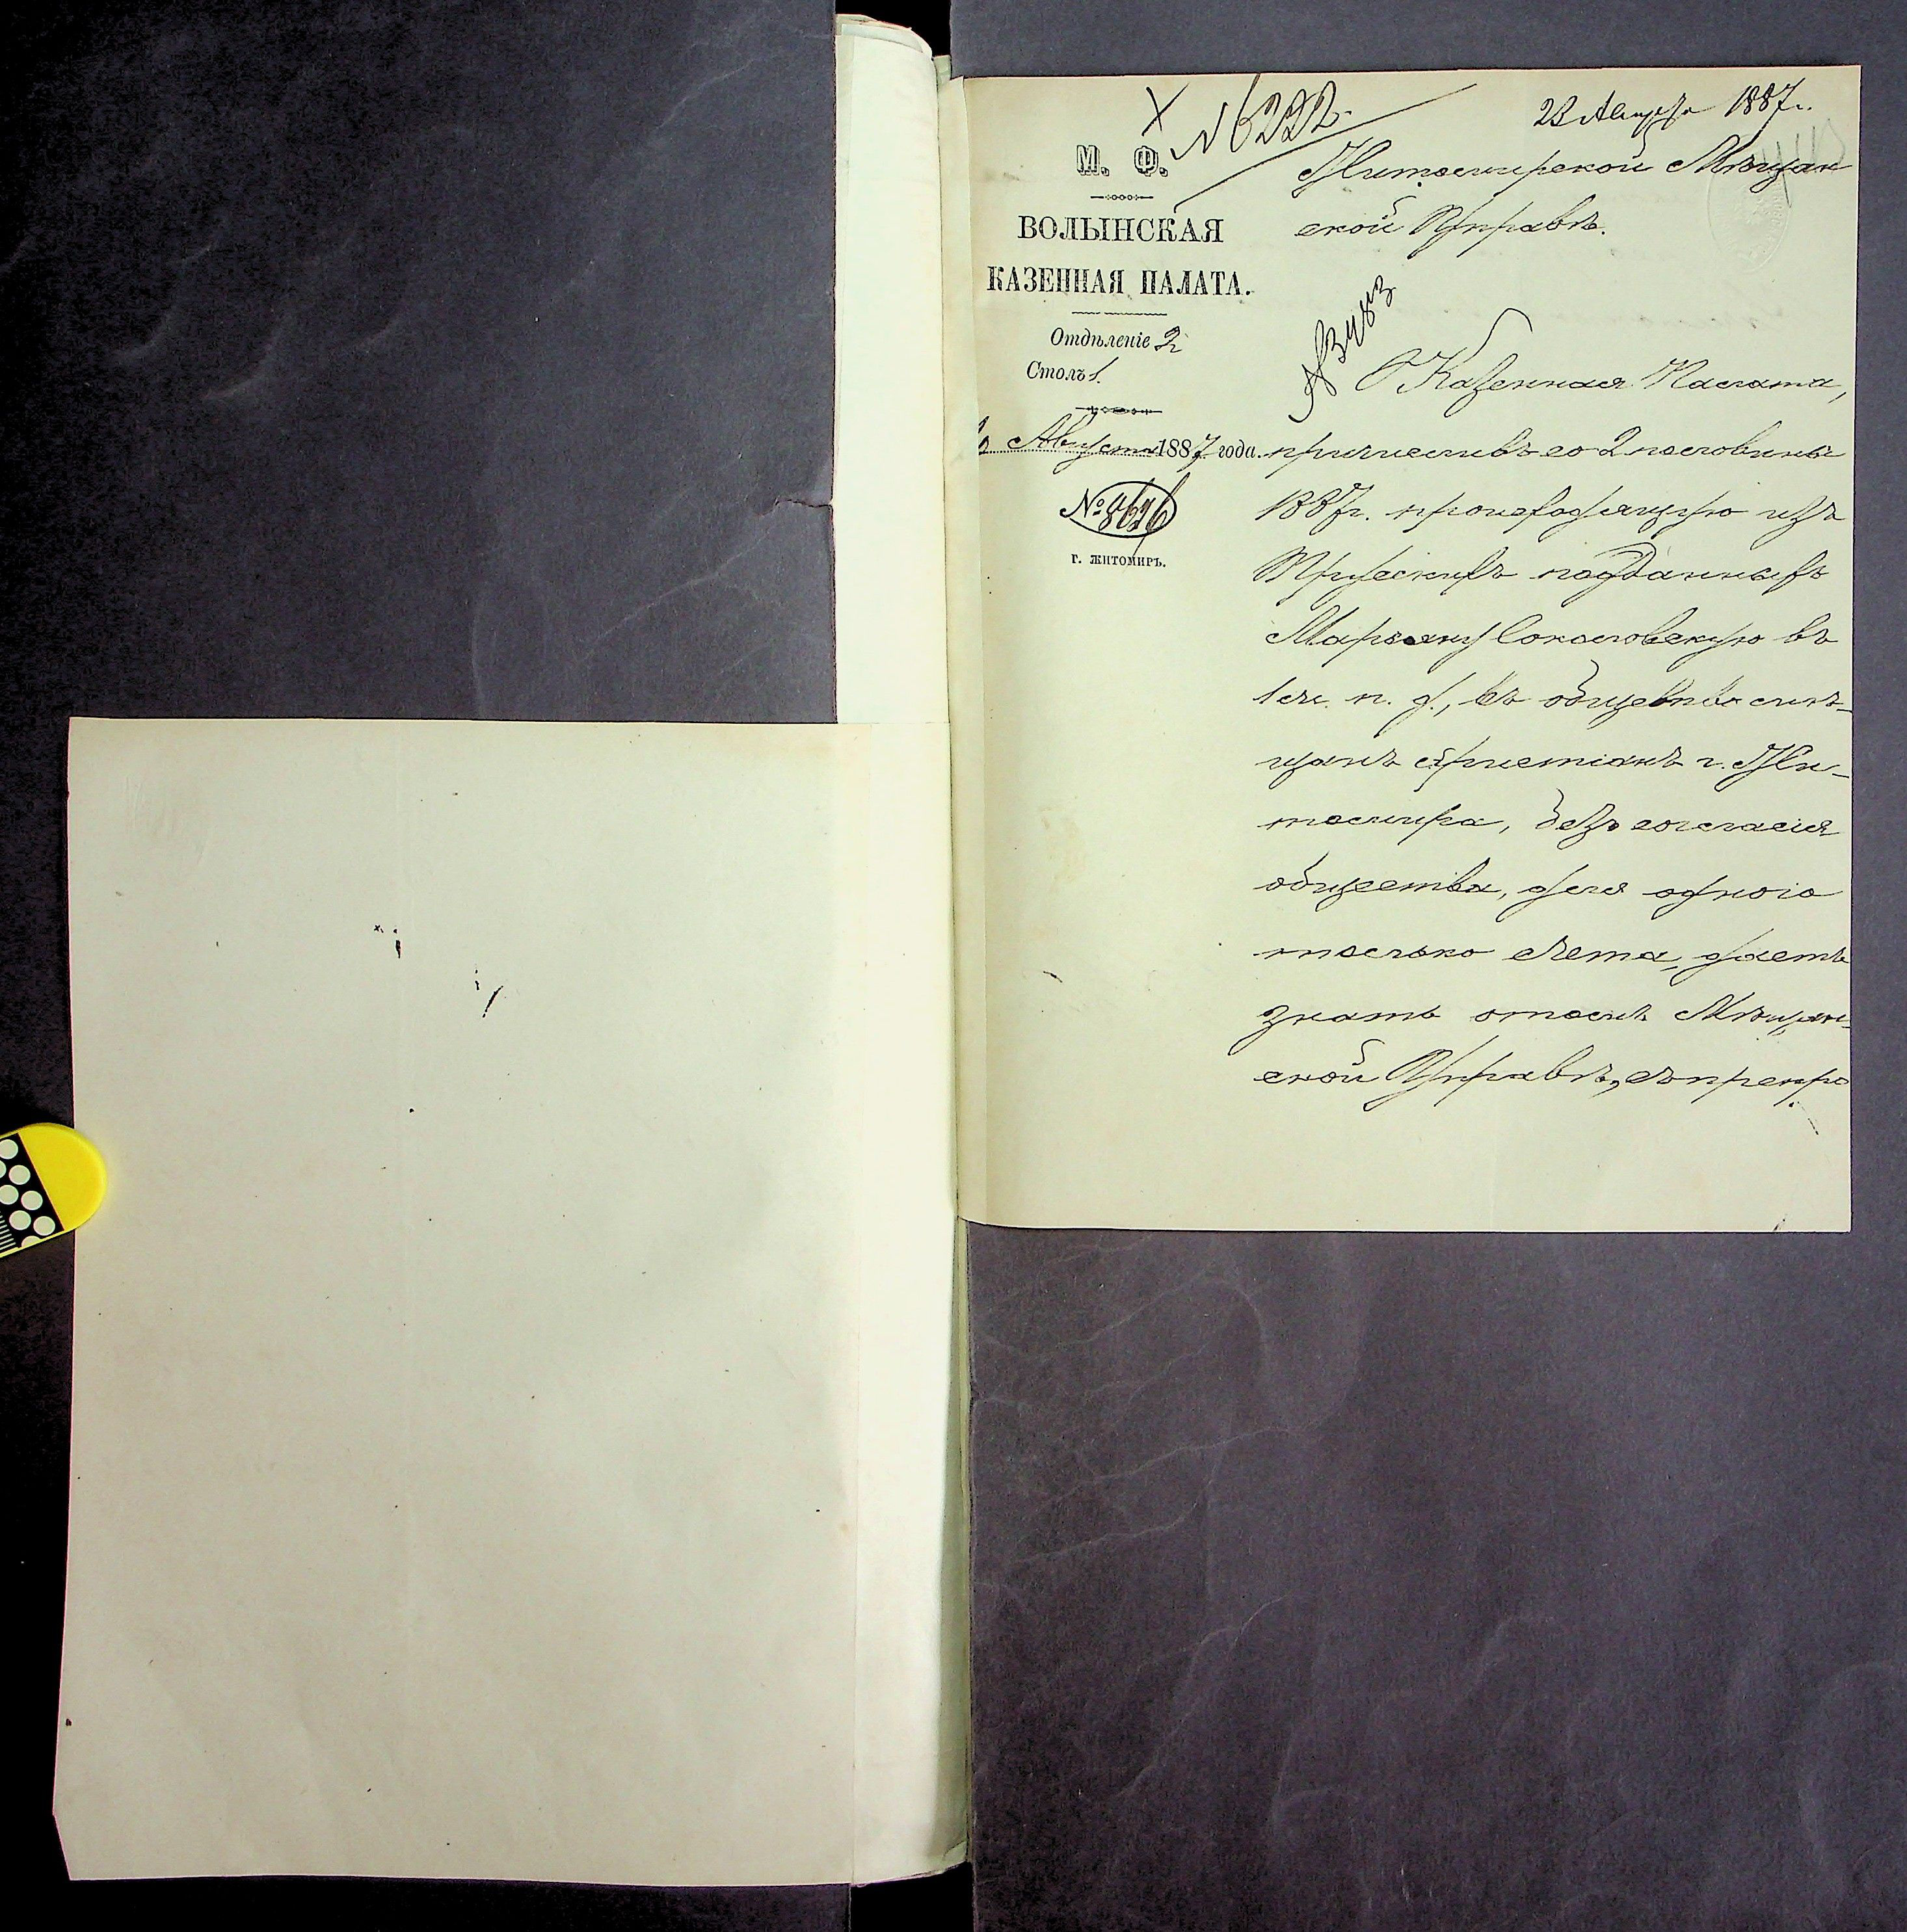 № 222.
23 Августа 1887 г.
М. Ф.
ВОЛЫНСКАЯ
КАЗЕННАЯ ПАЛАТА.
Отдѣленіе 2
Столъ 1.
Августа 1887 года.
№ 8626
Г. ЖИТОМИРЪ.
Житомирской Мѣщан
ской Управѣ.
№ 3483
Казенная Палата,
причисливъ со 2 половины
1887 г. происходящую изъ
Прусскихъ подданныхъ
Марьяну Соколовскую въ
1 ч. п. д., въ общество мѣ-
щанъ христіанъ г. Жи-
томира, безъ согласія
общества, для одного
только счета, даетъ
знать о томъ Мѣщан-
ской Управѣ, съ препро